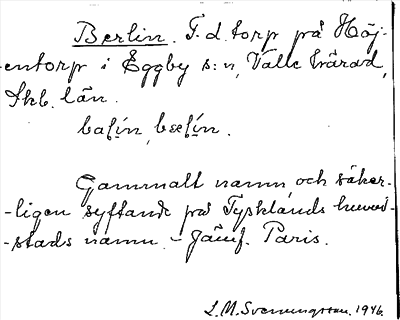 Berlin. F. d. torp på Höj-
entorp i Eggby s:n, Valle härad,
Skb. län.
bałín, bæłín.
Gammalt namn, och säker-
-ligen syftande på Tysklands huvud-
-stads namn. - Jämf. Paris.
L. M. Svenungsson. 1946.